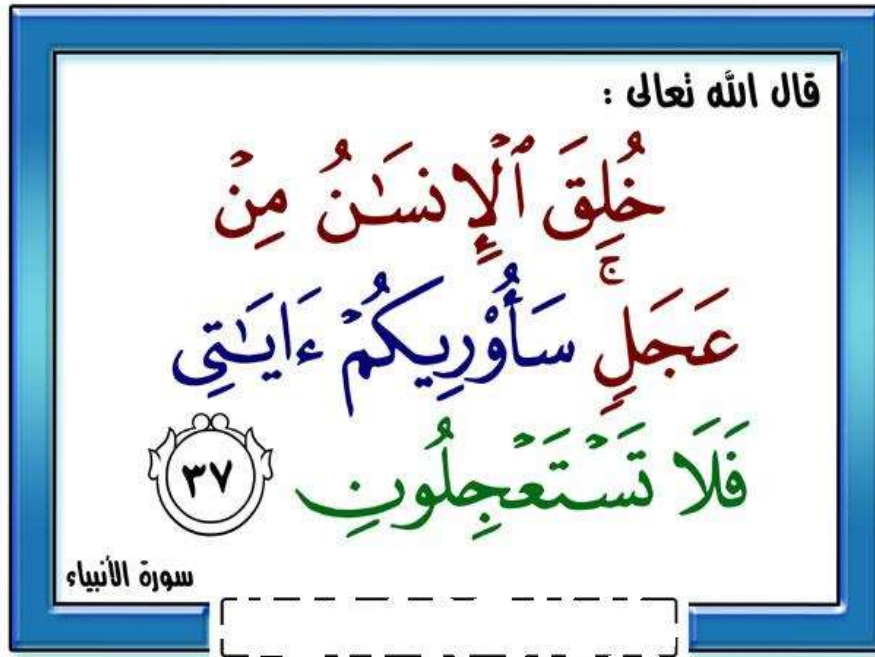 قال الله تعالى :
خُلِقَ ٱلْإِنسَـٰنُ مِنْ
عَجَلٍ ۚ سَأُو۟رِيكُمْ ءَايَـٰتِى
فَلَا تَسْتَعْجِلُونِ ٣٧
سورة الأنبياء